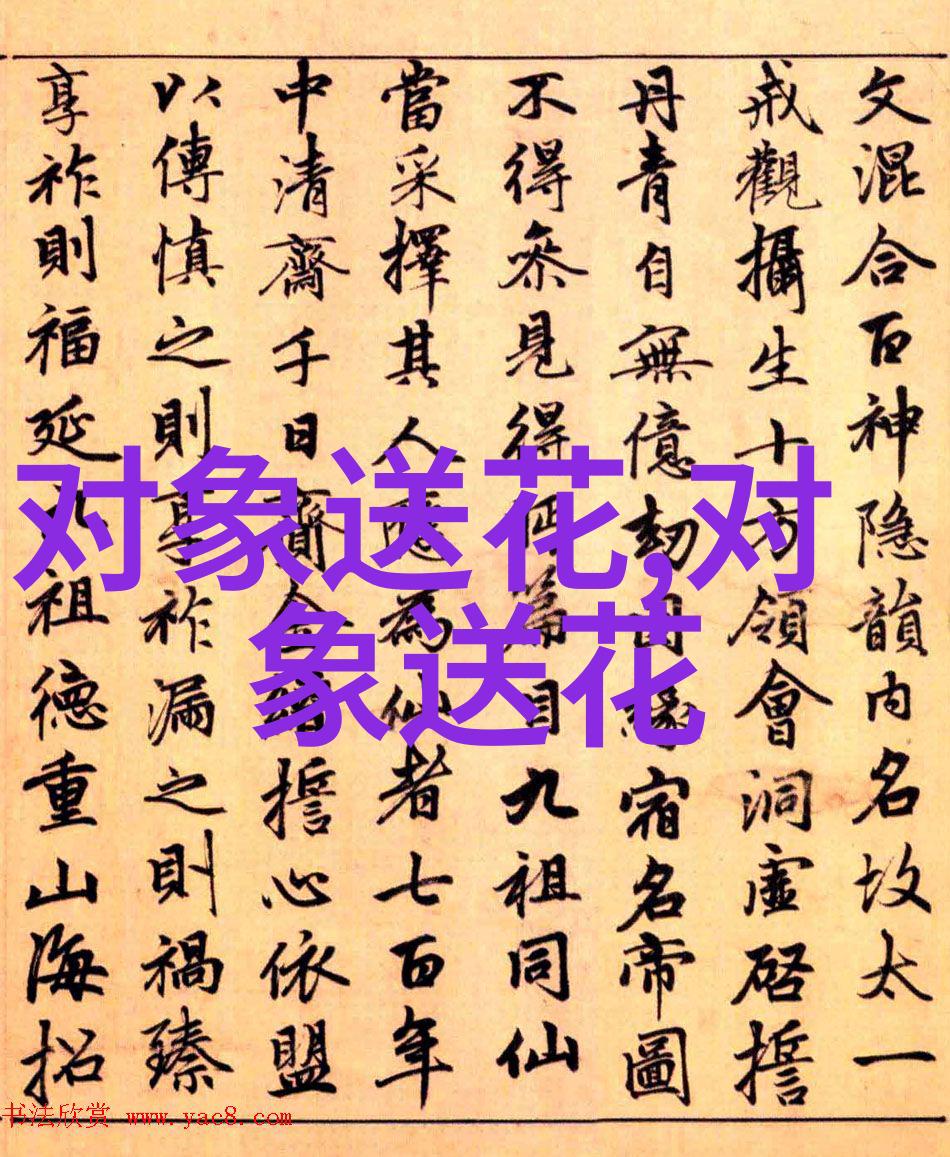 文混合百神隐韻内名故太一
戒觀攝生十方領會洞虚啓誓
丹青自無億劫因緣宿名帝圖
不得叅見得佩篇目九祖同仙
當采擇其人應為仙者七百年
中清齋千日齎金誓心依盟
以傳慎之則享祚漏之則禍臻
享祚則福延九祖德重山海招
对象送花,对
象送花
书法欣赏 www.yac8.com